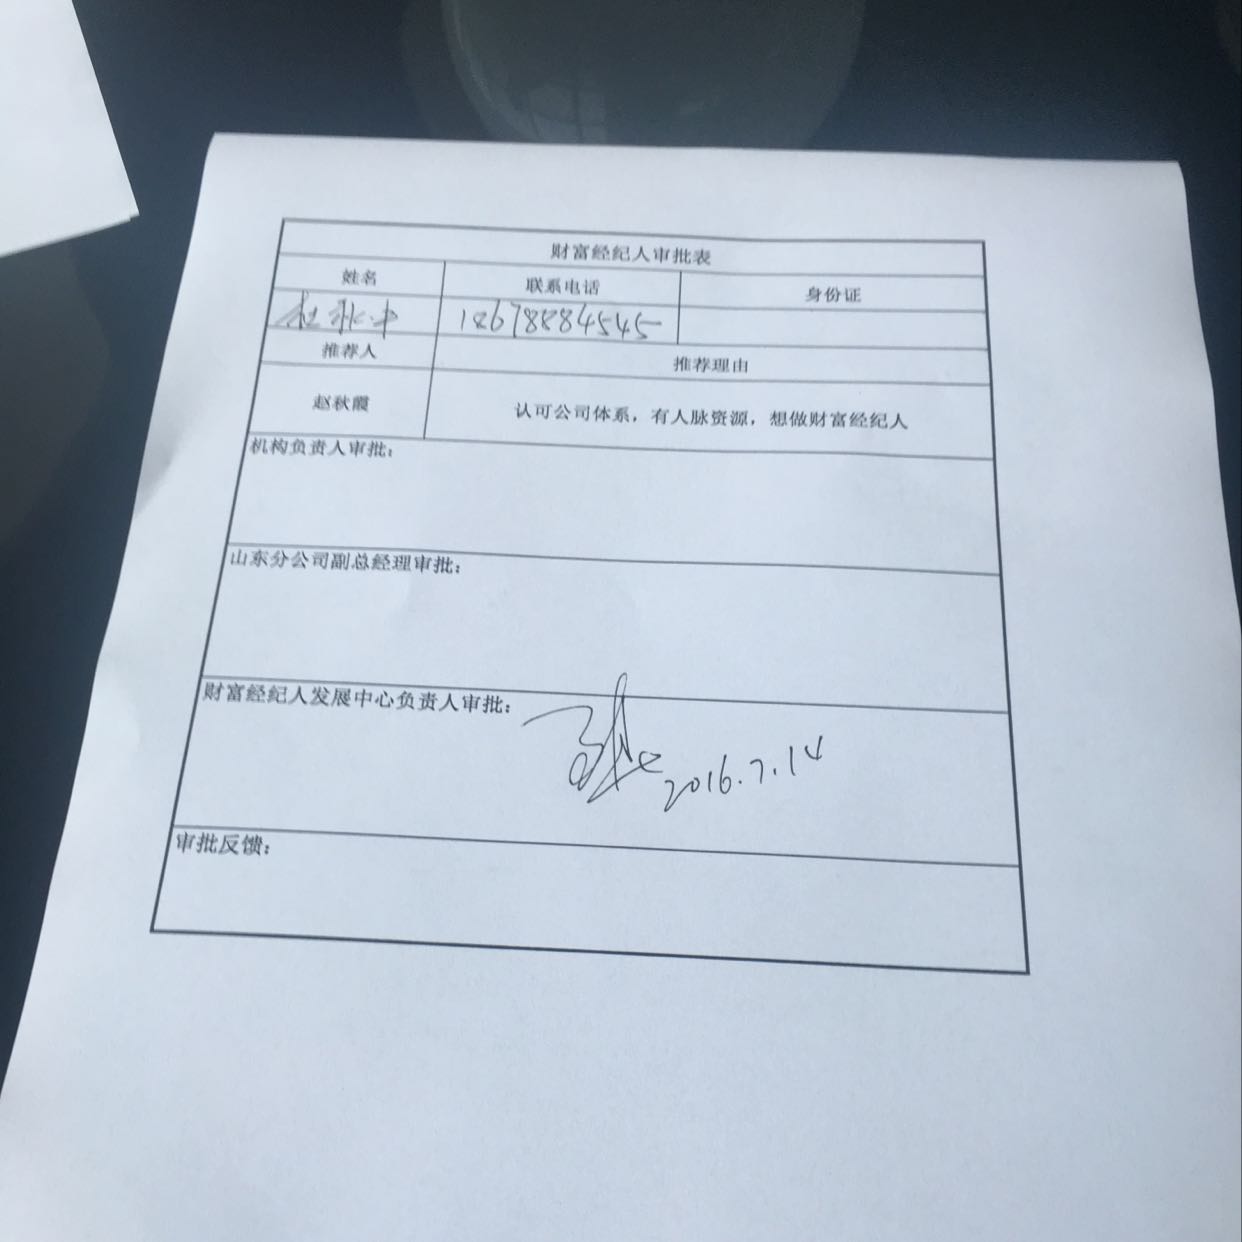 财富经纪人审批表
姓名 联系电话 身份证
杜 18678884545
推荐人 推荐理由
赵秋霞 认可公司体系，有人脉资源，想做财富经纪人
机构负责人审批：
山东分公司副总经理审批：
财富经纪人发展中心负责人审批：
2016.7.14
审批反馈：